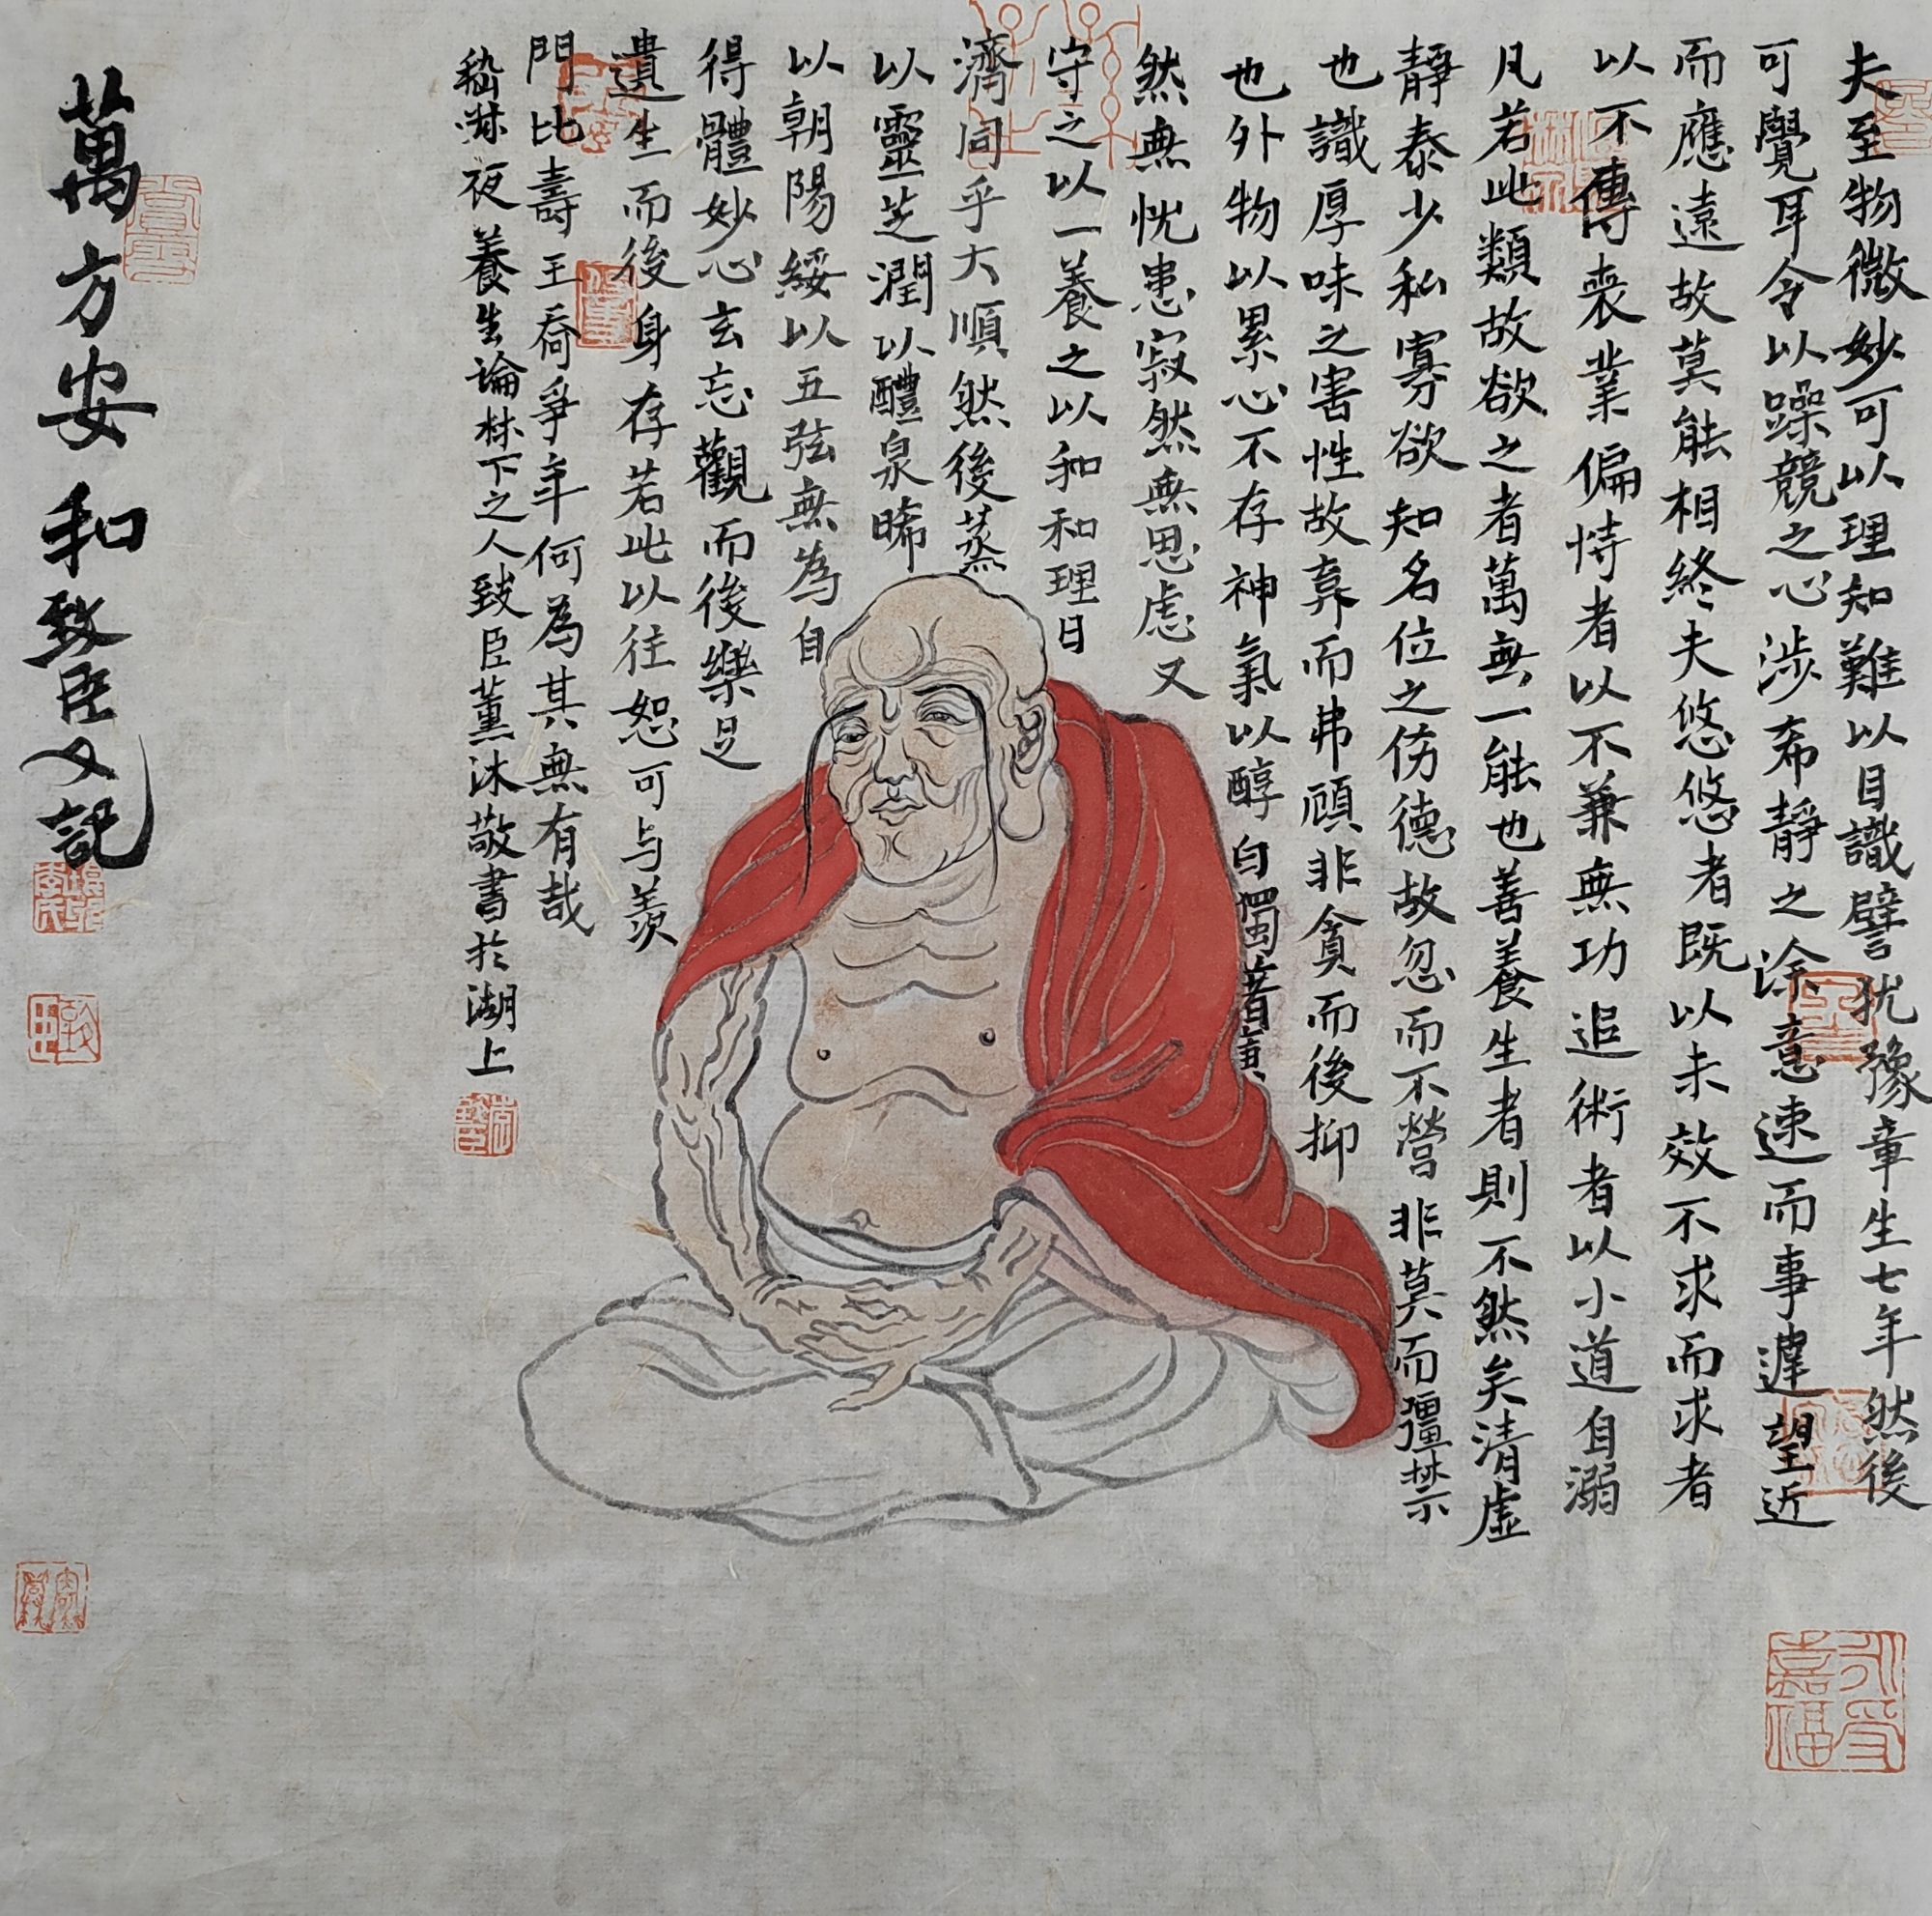 夫至物微妙可以理知難以目識譬犹豫章生七年然後
可覺耳令以躁競之心涉希靜之涂意速而事遲望近
而應遠故莫能相終夫悠悠者既以未效不求而求者
以不傳喪業偏恃者以不兼無功追術者以小道自溺
凡若此類故欲之者萬無一能也善養生者則不然矣清虛
靜泰少私寡欲知名位之傷德故忽而不營非莫而彊禁
也識厚味之害性故棄而弗顧非貪而後抑
也外物以累心不存神氣以醇白獨著曠
然無忧患寂然無思慮又
守之以一養之以和和理日
濟同乎大順然後蒸
以靈芝潤以醴泉晞
以朝陽綏以五弦無為自
得體妙心玄忘觀而後樂足
遺生而後身存若此以往恕可与羨
門比壽王喬爭年何為其無有哉
嵇叔夜養生論林下之人致臣薰沐敬書於湖上
萬方安和致臣又記
永受嘉福
致臣